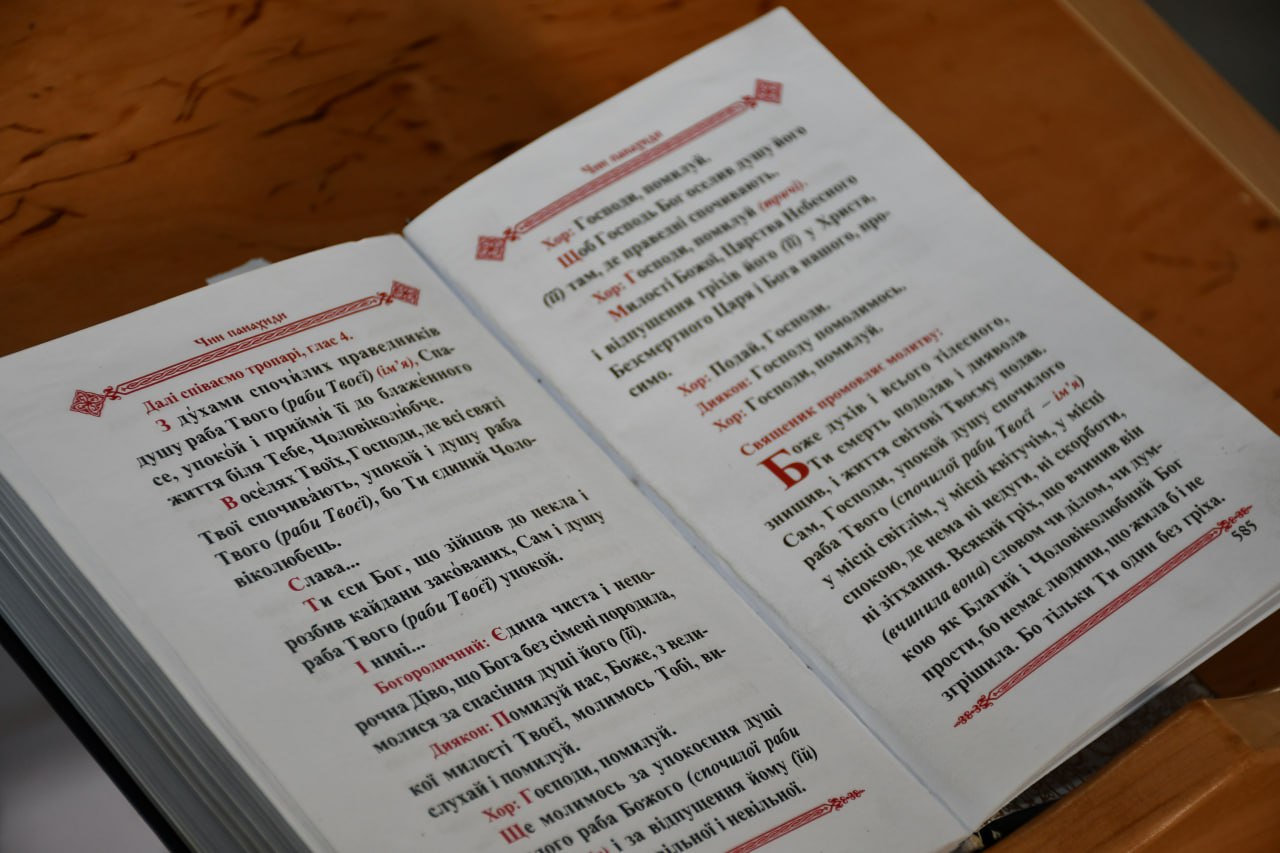 Чин панахиди
Далі співаємо тропарі, глас 4.
З ду́хами спочи́лих праведників
душу раба Твого (раби Твоєї) (ім’я), Спа-
се, упоко́й і прийми́ її до блаже́нного
життя біля Тебе, Чоловіколюбче.
В осе́лях Твоїх, Господи, де всі святі
Твої спочива́ють, упокой і душу раба
Твого (раби Твоєї), бо Ти єдиний Чоло-
віколюбець.
Слава...
Ти єси Бог, що зійшов до пекла і
розбив кайдани зако́ваних, Сам і душу
раба Твого (раби Твоєї) упокой.
І нині...
Богородичний: Єдина чиста і непо-
рочна Діво, що Бога без сімені породила,
молися за спасіння душі його (її).
Диякон: Помилуй нас, Боже, з вели-
кої милості Твоєї, молимось Тобі, ви-
слухай і помилуй.
Хор: Господи, помилуй.
Ще молимось за упокоєння душі
лого раба Божого (спочилої раби
і за відпущення йому (їй)
вільної і невільної.
Чин панахиди
Хор: Господи, помилуй.
Щоб Господь Бог оселив душу його
(її) там, де праведні спочивають.
Хор: Господи, помилуй (тричі).
Милості Божої, Царства Небесного
і відпущення гріхів його (її) у Христа,
Безсмертного Царя і Бога нашого, про-
симо.
Хор: Подай, Господи.
Диякон: Господу помолимось.
Хор: Господи, помилуй.
Священик промовляє молитву:
Боже духів і всього тілесного,
Ти смерть подолав і диявола
знищив, і життя світові Твоєму подав.
Сам, Господи, упокой душу спочилого
раба Твого (спочилої раби Твоєї – ім’я)
у місці світлім, у місці квітучім, у місці
спокою, де нема ні недуги, ні скорботи,
ні зітхання. Всякий гріх, що вчинив він
(вчинила вона) словом чи ділом, чи дум-
кою як Благий і Чоловіколюбний Бог
прости, бо немає людини, що жила б і не
згрішила. Бо тільки Ти один без гріха.
585